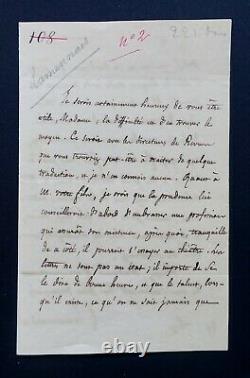 108
n° 2
Lamennais
Je serois certainement heureux de vous être
utile, Madame; la difficulté est d'en trouver le
moyen. Ce seroit avec les directeurs de Revues
que vous pourriez peut-être traiter de quelque
traduction, et je n'en connois aucun. Quant à
M. votre fils, je crois que la prudence lui
conseilleroit d'abord d'embrasser une profession
qui assurât son existence, après quoi, tranquille
de ce côté, il pourroit s'occuper du théâtre. Les
lettres ne sont pas un état; il importe de se
le dire de bonne heure, et que le talent, lors-
qu'il existe, ce qu'on ne sait jamais que